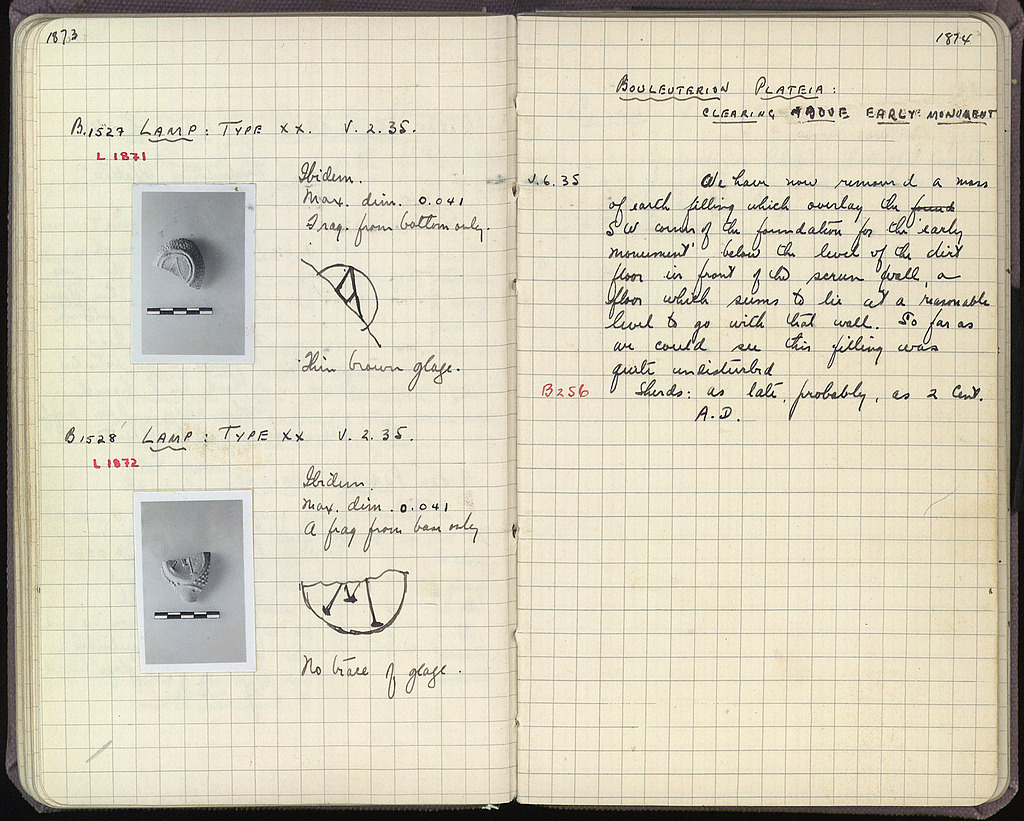 1873
B1527 LAMP: TYPE XX. V.2.35.
L 1871
Ibidem.
Max. dim. 0.041
Frag. from bottom only.
Thin brown glaze.
B1528 LAMP: TYPE XX V.2.35.
L 1872
Ibidem.
Max. dim. 0.041
A frag from base only
No trace of glaze.
1874
BOULEUTERION PLATEIA:
CLEARING ABOVE EARLY MONUMENT
V.6.35 We have now removed a mass
of earth filling which overlay the found
SW corner of the foundation for the 'early
monument' below the level of the dirt
floor in front of the scrun wall, a
floor which seems to lie at a reasonable
level to go with that wall. So far as
we could see this filling was
quite undisturbed
B256 Sherds: as late, probably, as 2 Cent.
A.D.